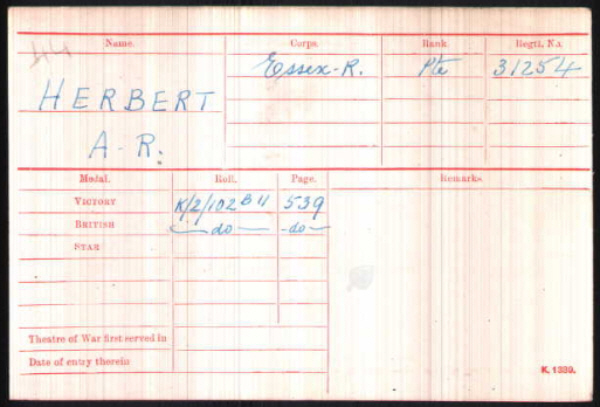 Name. Corps. Rank. Regtl. No.
HERBERT Essex. R. Pte 31254
A. R.
Medal. Roll. Page. Remarks.
VICTORY K/2/102 B 11 539
BRITISH do do
STAR
Theatre of War first served in
Date of entry therein
K. 1380.